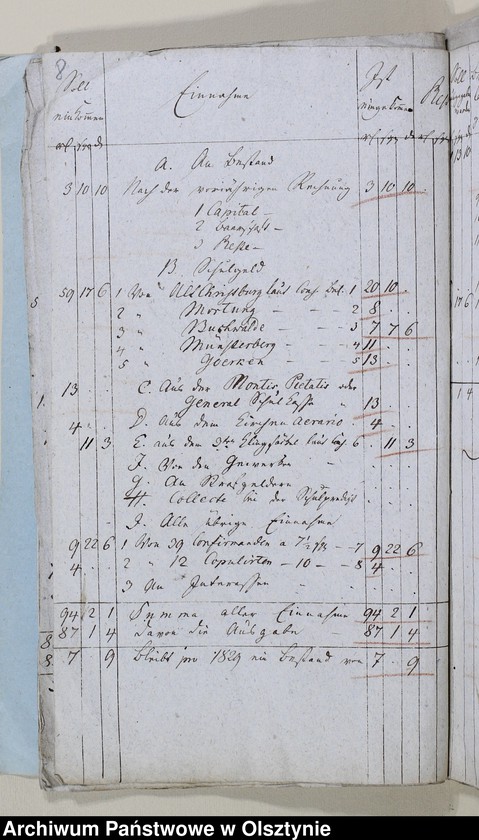 8
Soll Einnahme Ist Rest
einkommen eingekommen
rtl. sgr. d. rtl. sgr. d.
A. An Bestand
3 10 10 Nach der vorjährigen Rechnung 3 10 10
1 Capital -
2 baarschaft -
3 Reste -
B. Schulgeld
59 17 6 1 Von Altchristburg laut 1 20 10 .
2 " Mortung - - - 2 8 . .
3 " Buchwalde - - 3 7 7 6
4 " Münsterberg - - 4 11 . .
5 " Goerken - - - 5 13 . .
13 . . C. Aus der Montis Pietatis oder
General Schul Casse " 13 . .
4 . . D. Aus dem Kirchen aerario 4 . .
. 11 3 E. aus dem Klingsäckel laut 6 . 11 3
F. Von den Gewerken
G. An Strafgeldern
H. Collecte bei der Schulpredigt
J. Alle übrige Einnahme
9 22 6 1 Von 39 Confirmanden a 7½ sgr - 7 9 22 6
4 . . 2 " 12 Copulirten - 10 - - 8 4 . .
3 An Interessen
94 2 1 Summa aller Einnahme 94 2 1
87 1 4 Davon die Ausgabe - 87 1 4
7 . 9 Bleibt pro 1829 ein Bestand von 7 . 9
Archiwum Państwowe w Olsztynie